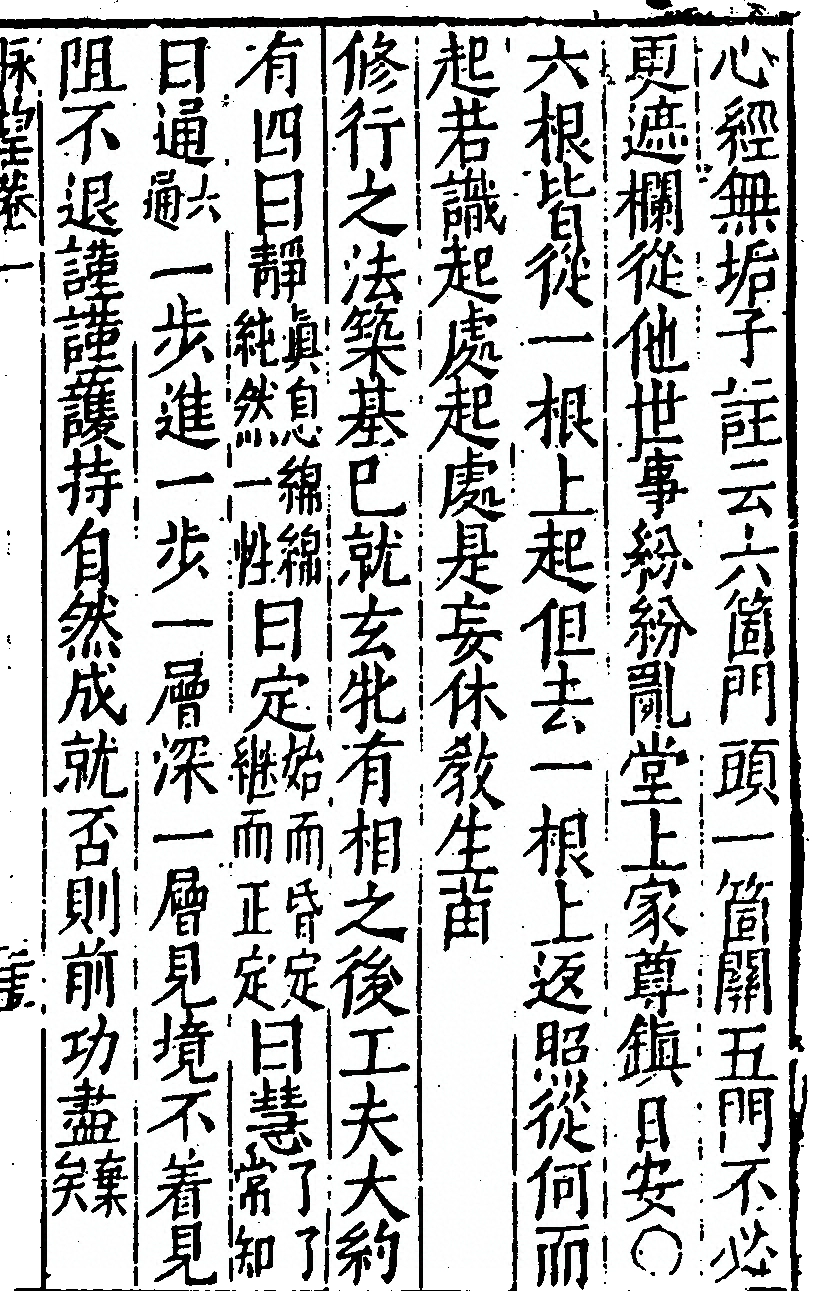 心經無垢子註云六箇門頭一箇關五門不必
更遮欄從他世事紛紛亂堂上家尊鎮日安〇
六根皆從一根上起但去一根上返照從何而
起若識起處起處是妄休教生苗
修行之法築基已就玄牝有相之後工夫大約
有四曰靜真息綿綿純然一性曰定始而昏定繼而正定曰慧了了常知
曰通六通一步進一步一層深一層見境不着見
阻不退謹謹護持自然成就否則前功盡棄矣
脉望卷一